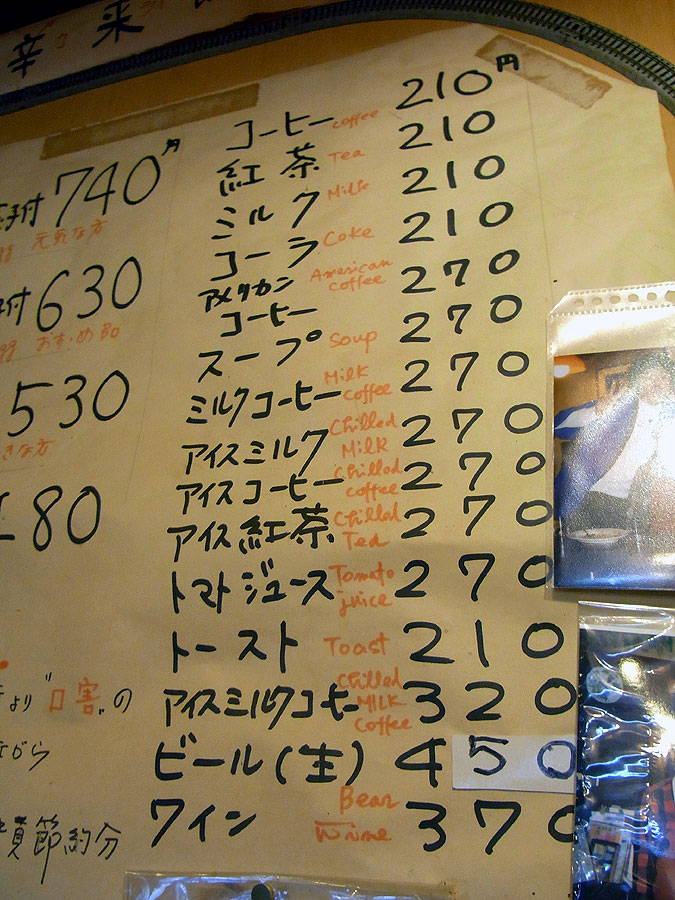 辛来
子付 740円
元気な方
付 630
おすすめ品
530
きな方
180
より"口割"の
ながら
費節約分
コーヒー coffee 210円
紅茶 Tea 210
ミルク Milk 210
コーラ Coke 210
アメリカン
コーヒー American
coffee 270
スープ Soup 270
ミルクコーヒー Milk
coffee 270
アイスミルク Chilled
Milk 270
アイスコーヒー Chilled
coffee 270
アイス紅茶 Chilled
Tea 270
トマトジュース Tomato
juice 270
トースト Toast 210
アイスミルクコーヒー Chilled
MILK
coffee 320
ビール(生) Bear 450
ワイン Wine 370